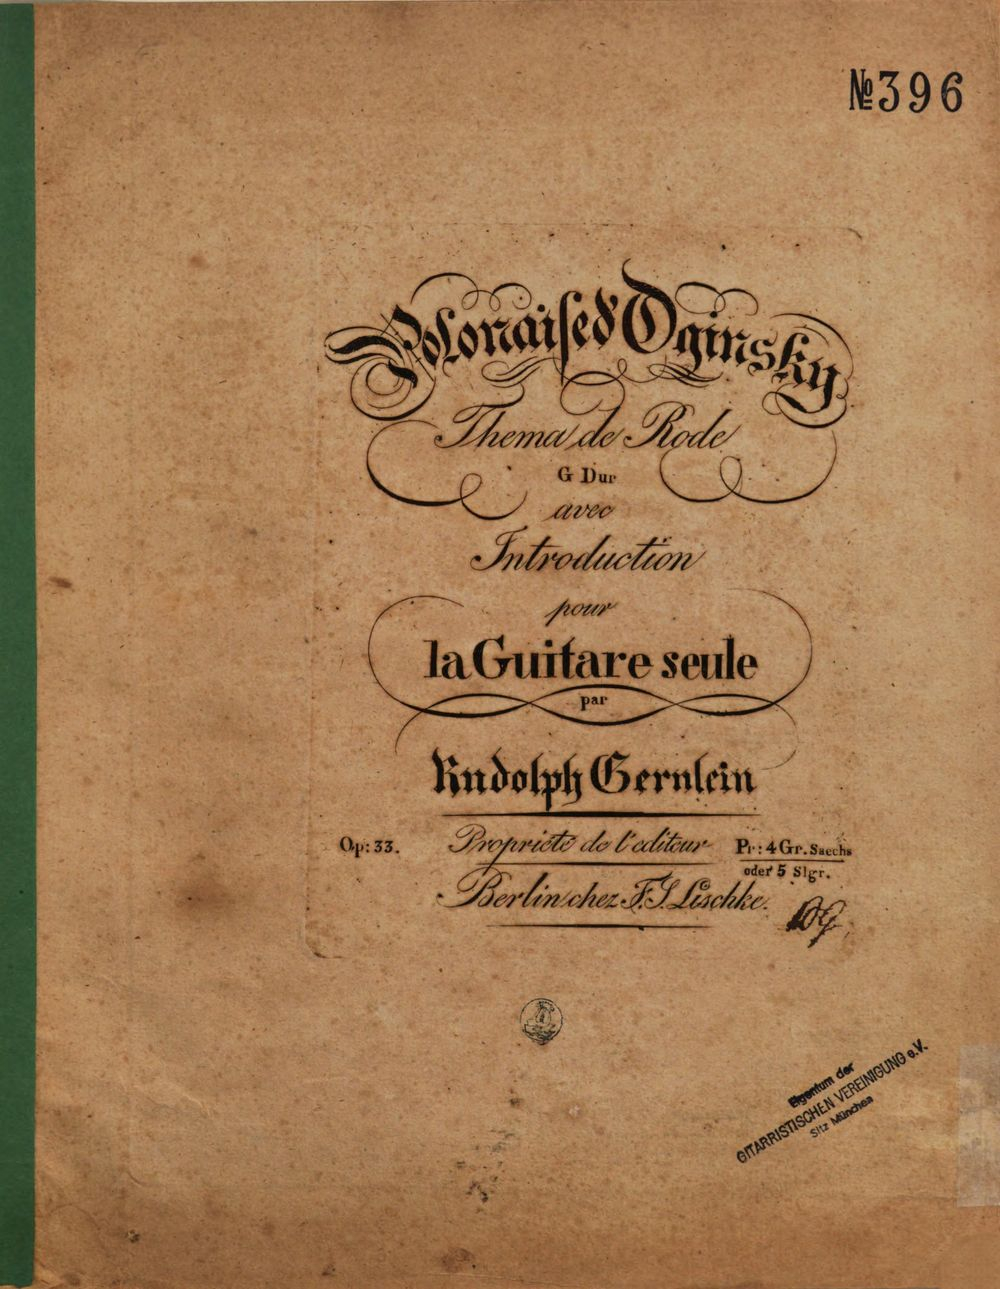 №396
Polonaise d'Oginsky
Thema de Rode
G Dur
avec
Introduction
pour
la Guitare seule
par
Rudolph Gernlein
Op: 33.
Proprieté de l'editeur
Pr: 4 Gr. Saechs
oder 5 Slgr.
Berlin chez F. S. Lischke.
Eigentum der
GITARRISTISCHEN VEREINIGUNG e.V.
Sitz München